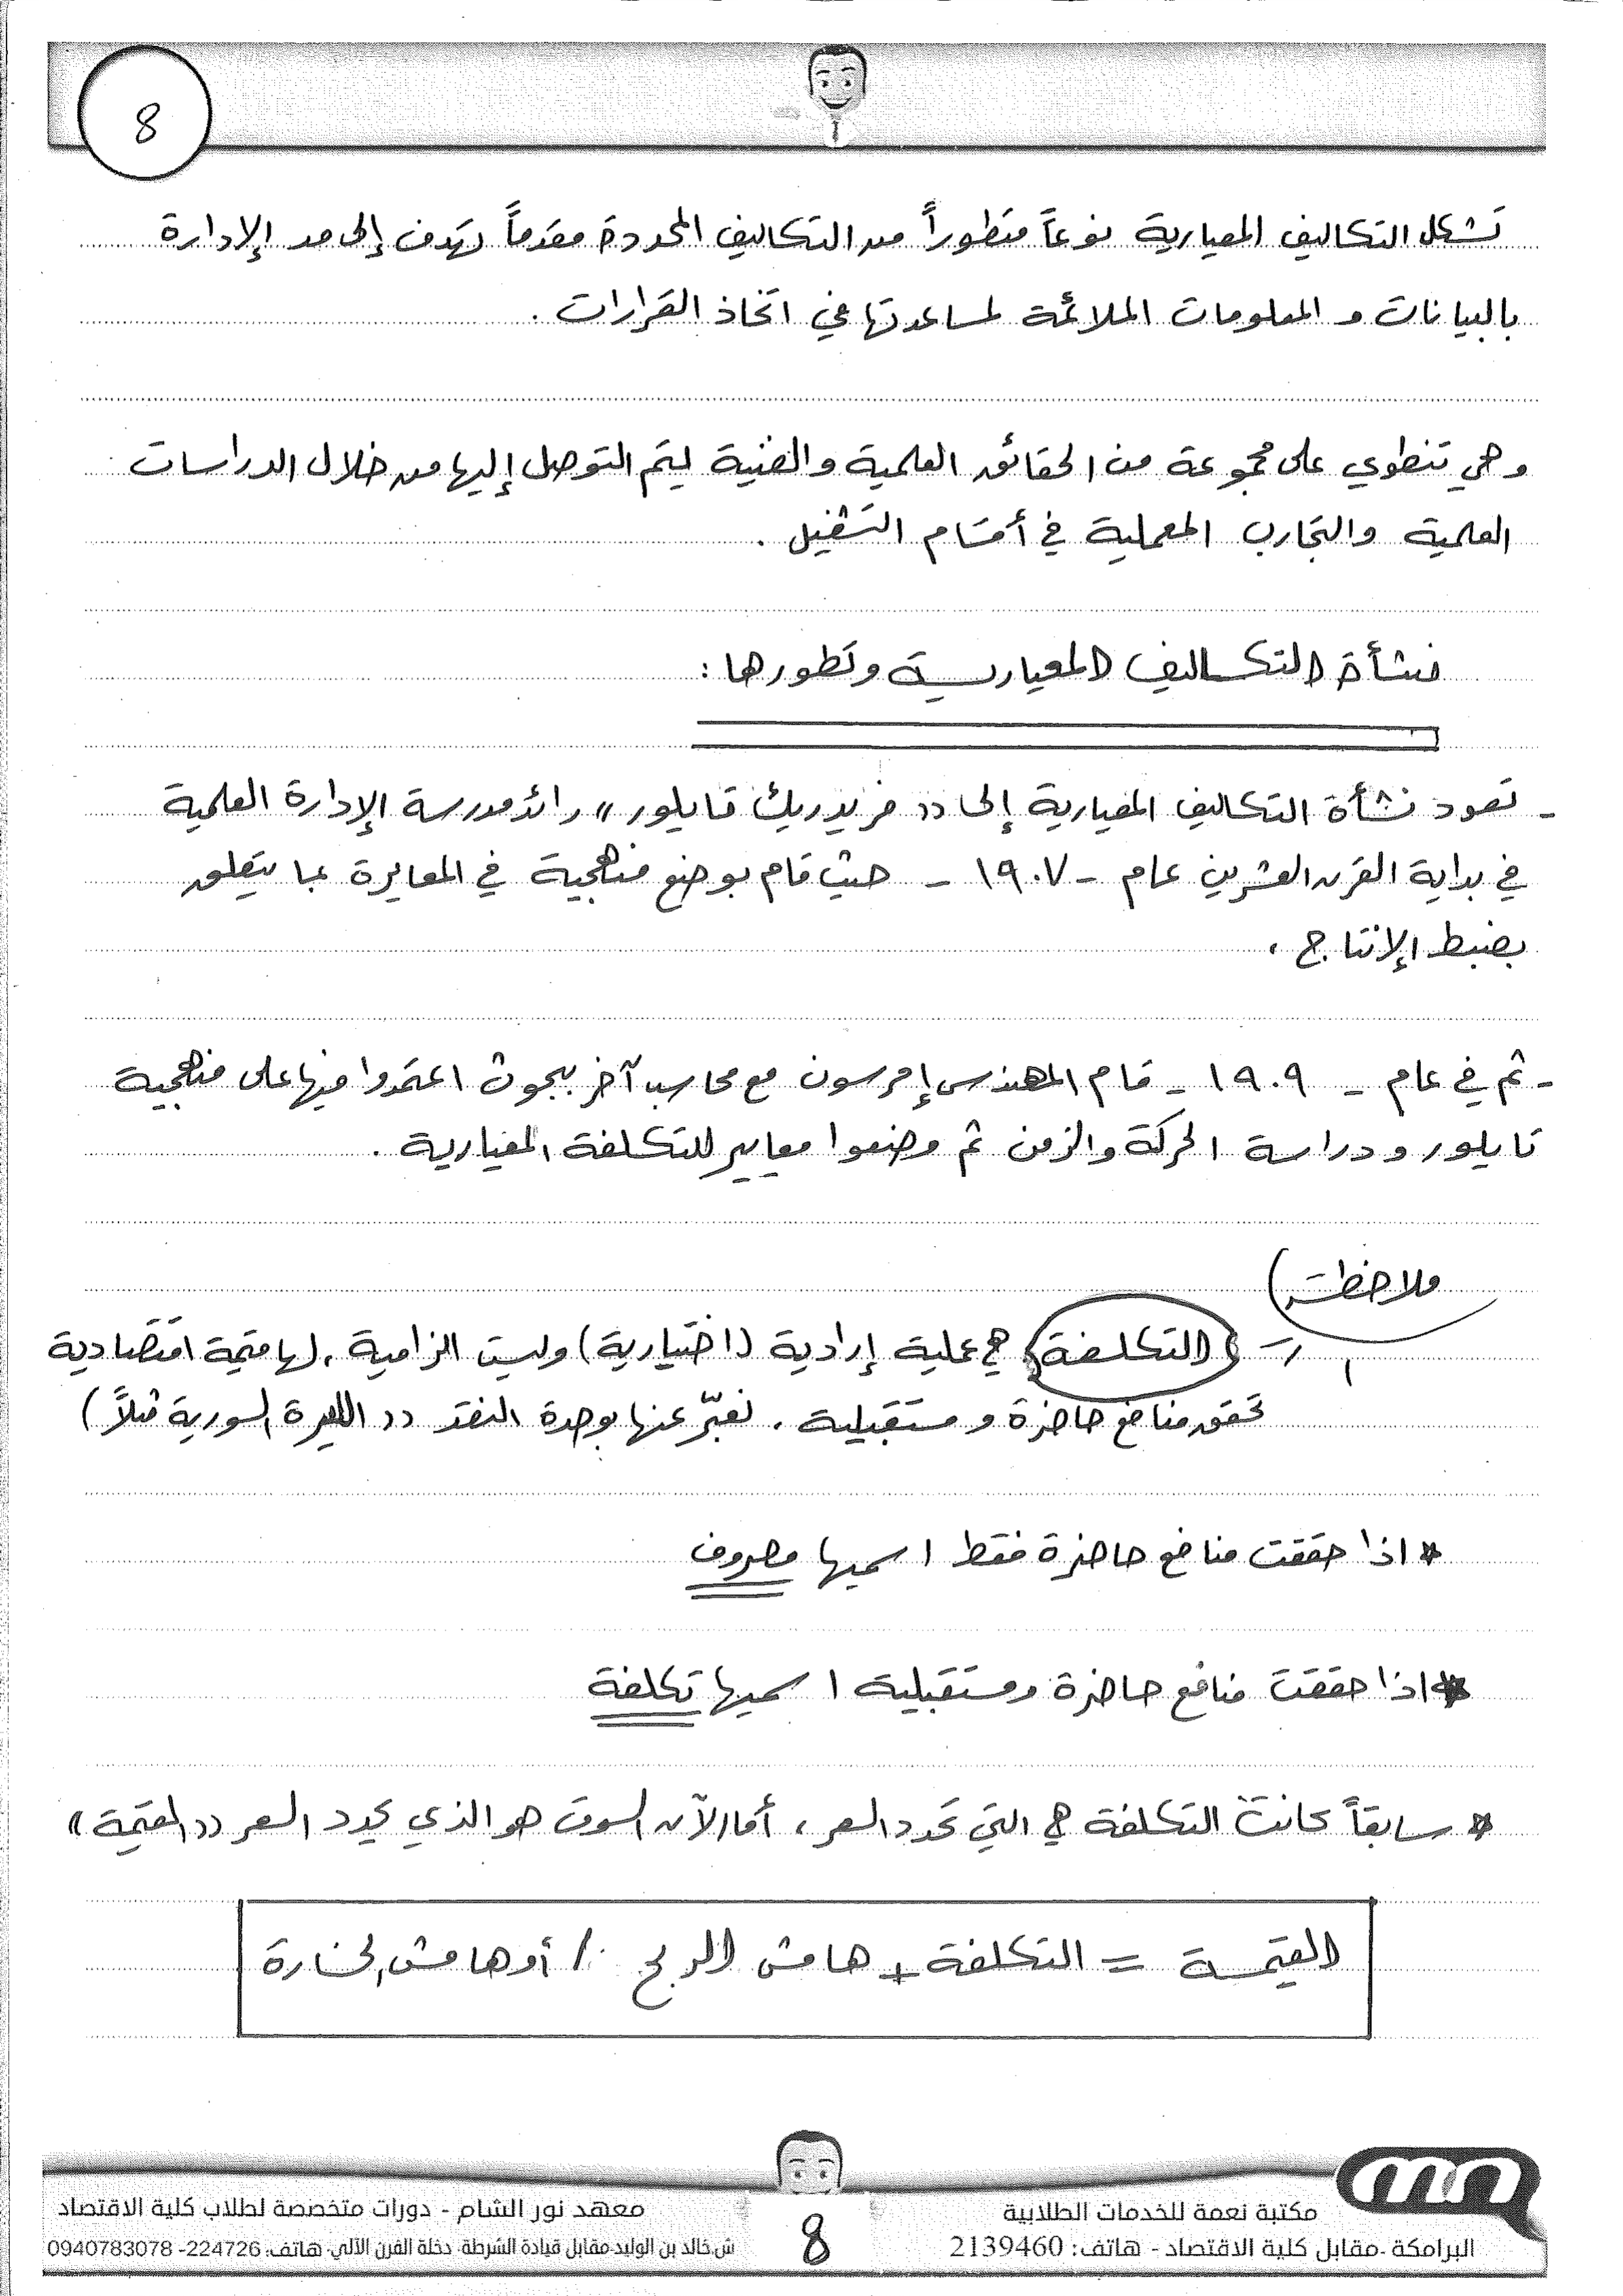 8
تشكل التكاليف المعيارية نوعاً متطوراً من التكاليف المحددة مقدماً تهدف إلى مد الإدارة
بالبيانات و المعلومات الملائمة لمساعدتها في اتخاذ القرارات .
وهي تنطوي على مجموعة من الحقائق العلمية والفنية ليتم التوصل إليها من خلال الدراسات
العلمية والتجارب المعملية في أقسام التشغيل .
نشأة التكاليف المعيارية وتطورها :
- تعود نشأة التكاليف المعيارية إلى (( فريدريك تايلور )) رائد مدرسة الإدارة العلمية
في بداية القرن العشرين عام - ١٩٠٧ - حيث قام بوضع منهجية في المعايرة بما يتعلق
بضبط الإنتاج .
- ثم في عام - ١٩٠٩ - قام المهندس إمرسون مع محاسب آخر ببحوث اعتمدوا فيها على منهجية
تايلور و دراسة الحركة والزمن ثم وضعوا معايير للتكلفة المعيارية .
ملاحظات
١ - التكلفة هي عملية إرادية (اختيارية) وليست الزامية ، لها قيمة اقتصادية
تحقق منافع حاضرة و مستقبلية . نعبّر عنها بوحدة النقد (( الليرة السورية مثلاً )
* اذا حققت منافع حاضرة فقط اسميها مصروف
* اذا حققت منافع حاضرة ومستقبلية اسميها تكلفة
* سابقاً كانت التكلفة هي التي تحدد السعر ، أما الآن السوق هو الذي يحدد السعر (( القيمة ))
القيمة = التكلفة + هامش الربح / أو هامش الخسارة
مكتبة نعمة للخدمات الطلابية
البرامكة -مقابل كلية الاقتصاد - هاتف: 2139460
8
معهد نور الشام - دورات متخصصة لطلاب كلية الاقتصاد
ش.خالد بن الوليد-مقابل قيادة الشرطة- دخلة الفرن الآلي- هاتف: 224726- 0940783078